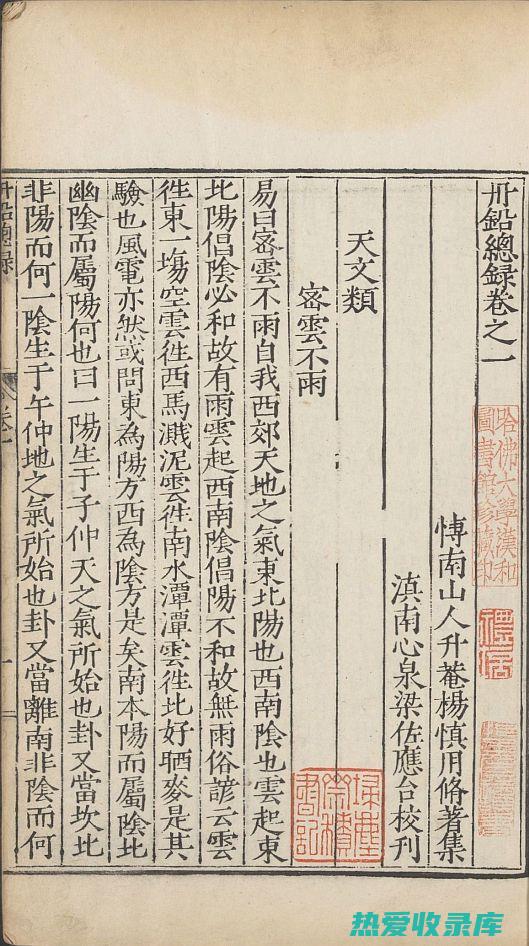 丹鉛總錄卷之一
哈佛大學漢和
圖書館珍藏印
博南山人升菴楊慎用脩著集
滇南心泉梁佐應台校刊
埽塵
齋積
書記
天文類
密雲不雨
易曰密雲不雨自我西郊天地之氣東北陽也西南陰也雲起東
北陽倡陰必和故有雨雲起西南陰倡陽不和故無雨俗諺云雲
徃東一塲空雲徃西馬濺泥雲徃南水潭潭雲徃北好晒麥是其
驗也風電亦然或問東為陽方西為陰方是矣南本陽而屬陰北
幽陰而屬陽何也曰一陽生于子仲天之氣所始也卦又當坎北
非陽而何一陰生于午仲地之氣所始也卦又當離南非陰而何
丹鉛總录 卷一 一
热爱收录库